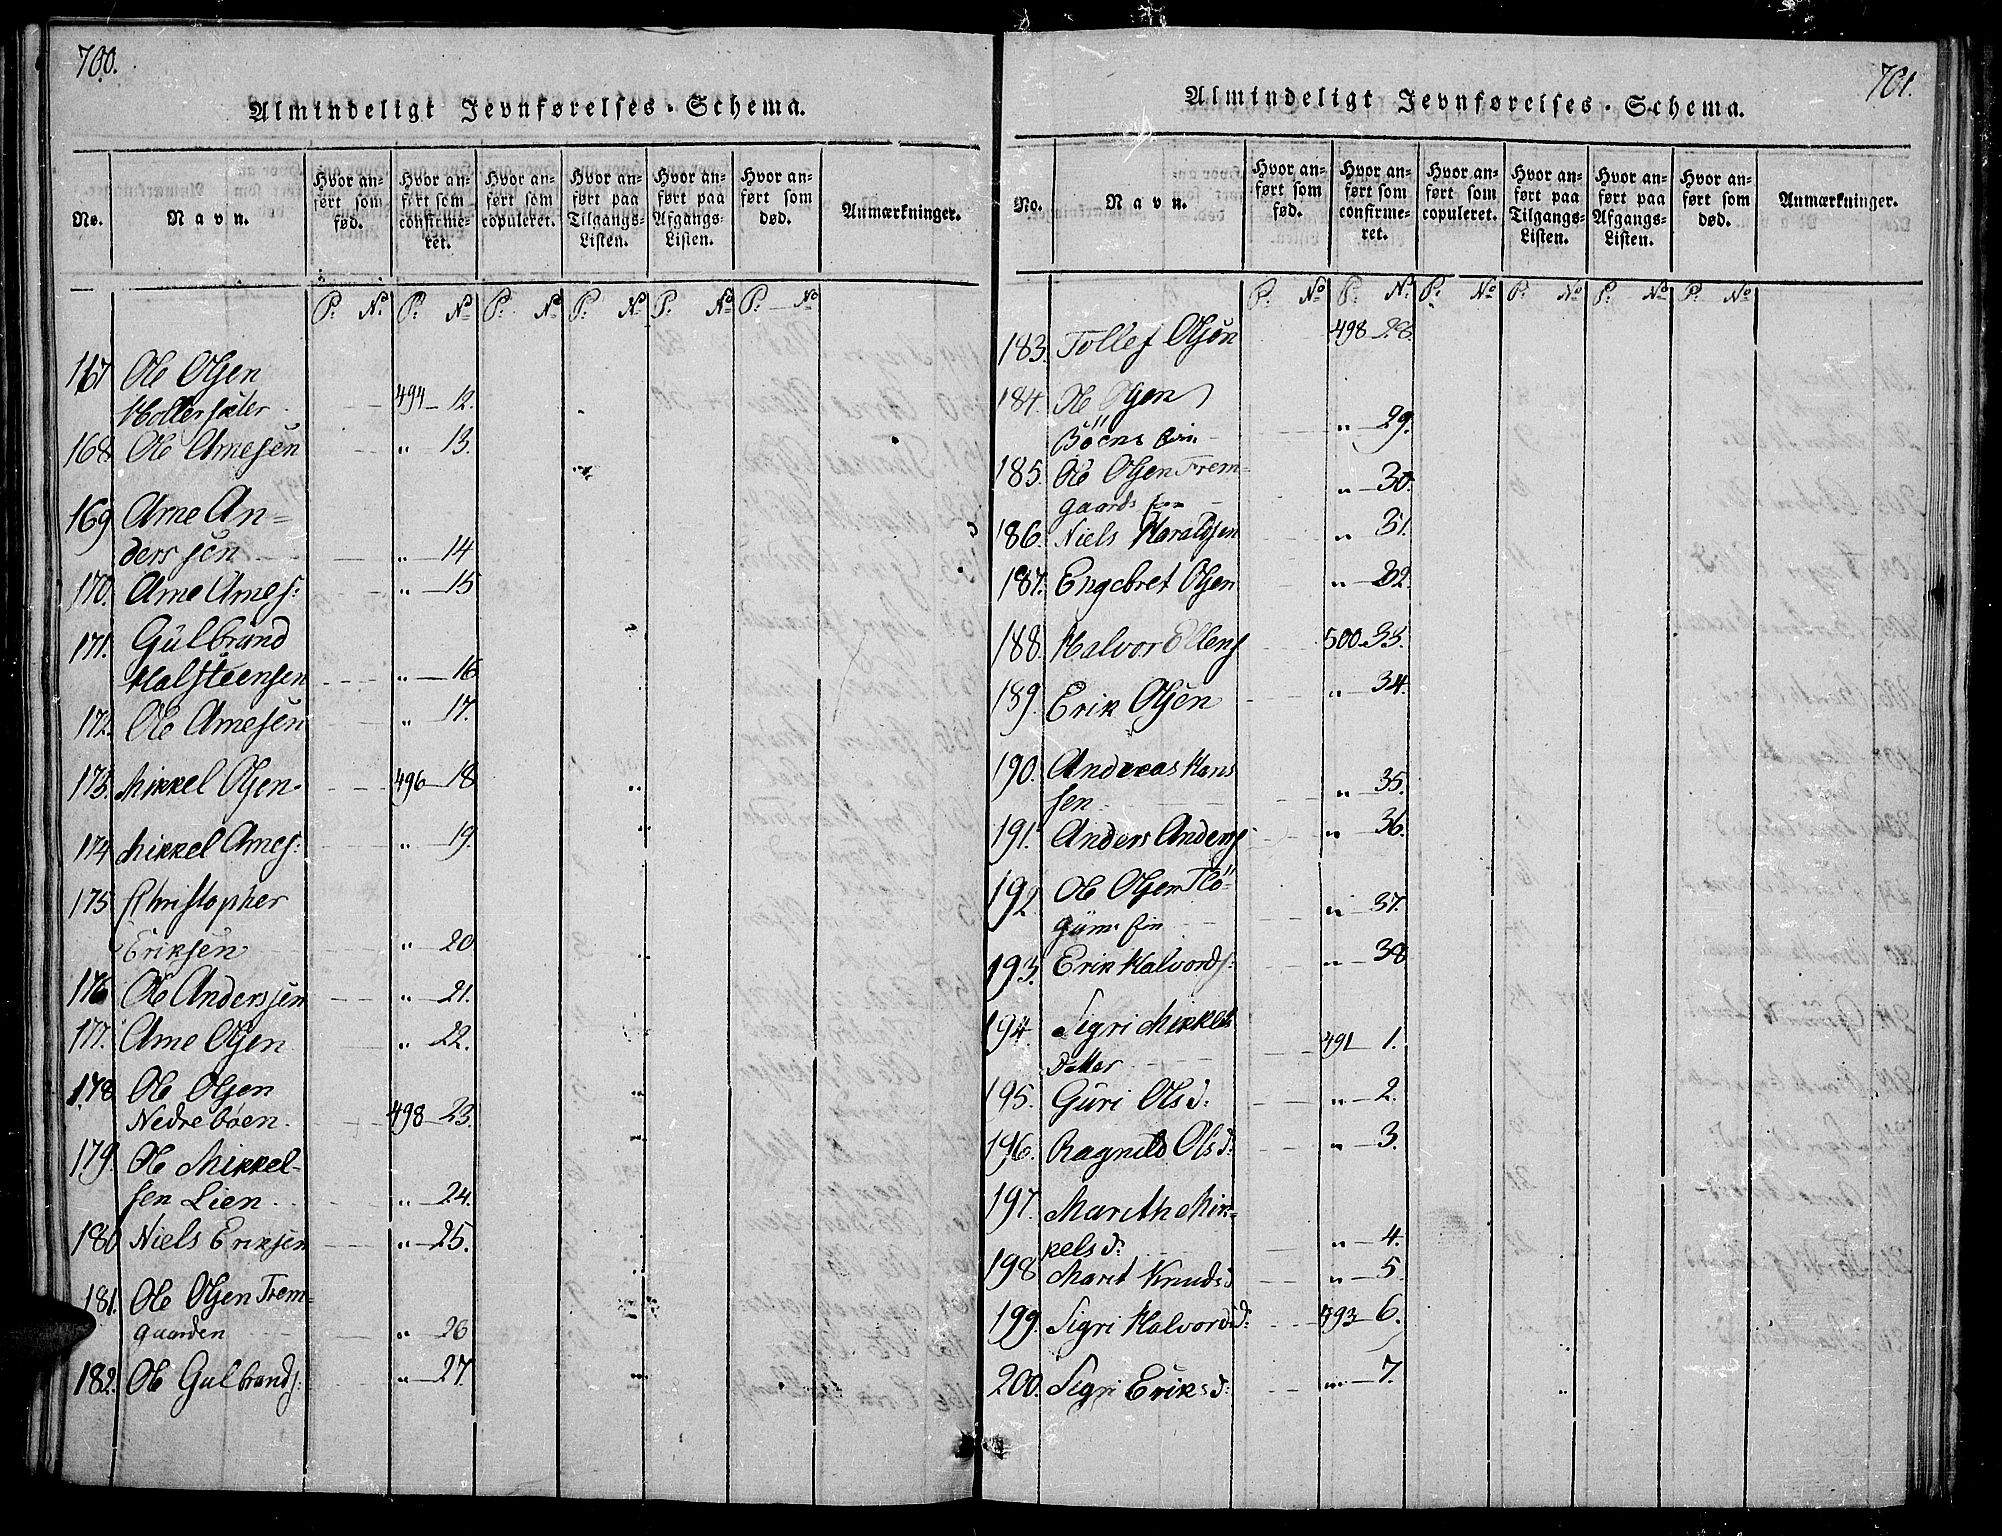 700.
Almindeligt Jevnførelses-Schema.
No.
Navn.
Hvor anført som fød.
Hvor anført som confirmeret.
Hvor anført som copuleret.
Hvor anført paa Tilgangs-Listen.
Hvor anført paa Afgangs-Listen.
Hvor anført som død.
Anmærkninger.
P. No P. No P. No P. No P. No P. No
167 Ole Olsen
494 12.
168 Ole Arnesen " 13.
169 Arne An=
derssen " 14
170. Arne Arnes: " 15
171. Gulbrand
Halsteensen " 16
172. Ole Arnesen " 17.
173. Mikkel Olsen 496 18
174 Mikkel Arnes: " 19
175 Christopher
Eriksen " 20
176 Ole Anderssen " 21.
177. Arne Olsen " 22.
178 Ole Olsen
Nedrebøen. 498 23.
179. Ole Mikkel-
sen Lien " 24.
180 Niels Eriksen " 25.
181. Ole Olsen Frem=
gaarden " 26
182. Ole Gulbrands: " 27.
701.
Almindeligt Jevnførelses-Schema.
No.
Navn.
Hvor anført som fød.
Hvor anført som confirmeret.
Hvor anført som copuleret.
Hvor anført paa Tilgangs-Listen.
Hvor anført paa Afgangs-Listen.
Hvor anført som død.
Anmærkninger.
P. No P. No P. No P. No P. No P. No
183. Tollef Olsön 498 28.
184. Ole Olsen
" 29.
185. Ole Olsen Frem=
gaards " 30.
186. Niels Haraldsen " 31.
187. Engebret Olsen " 32.
188. Halvor Ellens 500 33.
189. Erik Olsen " 34.
190. Andreas Hans
sen " 35.
191. Anders Anders " 36.
192. Ole Olsen
" 37.
193. Erik Halvords: " 38
194. Sigri Mikkels
Datter 491 1.
195. Guri Ols d: " 2.
196. Ragnild Ols d: " 3.
197. Marith Mik=
kels d: " 4.
198 Marit Knuds d " 5.
199. Sigri Halvords d: 493 6.
200. Sigri Eriks d: " 7.